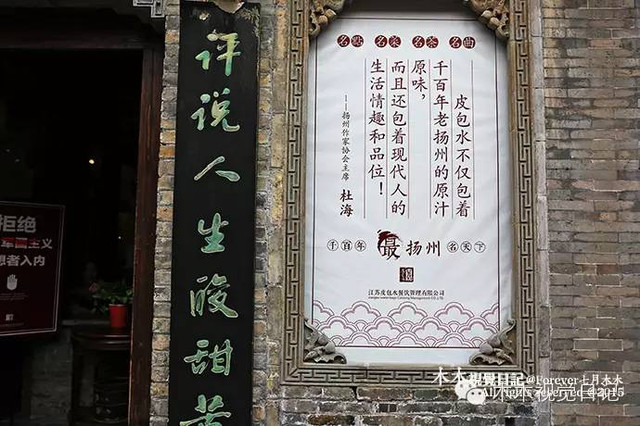 名點 名泉 名茶 名曲
皮包水不仅包着
千百年老扬州的原汁
原味，
而且还包着现代人的
生活情趣和品位！
——扬州作家协会主席 杜海
千百年 最扬州 名天下
江苏皮包水餐饮管理有限公司
评说人生酸甜苦
拒绝
主义
者入内
木木視覺日記@Forever七月木木
All rights reserved @2015